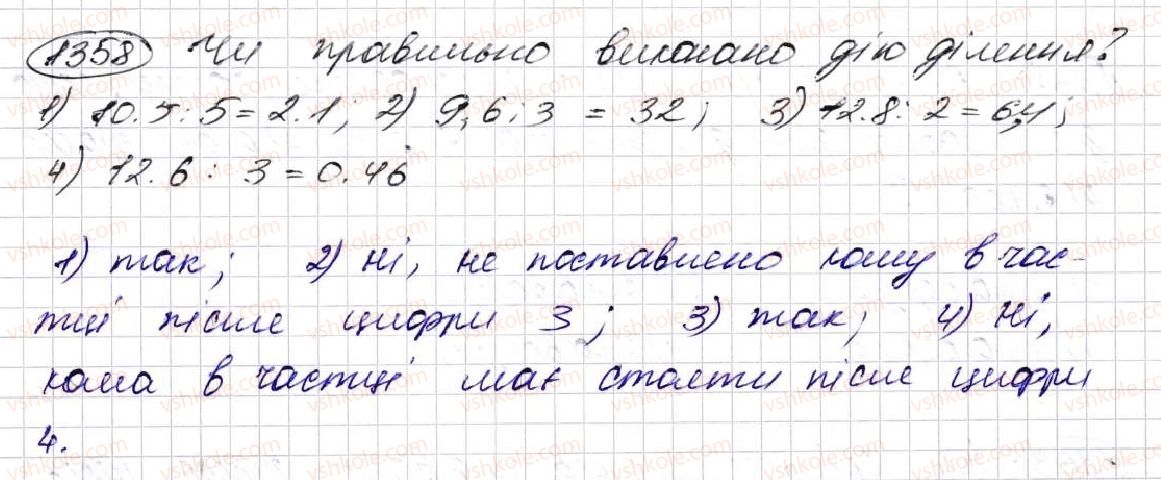 1358 Чи правильно виконано дію ділення?
1) 10.5 : 5 = 2.1; 2) 9,6 : 3 = 32; 3) 12.8 : 2 = 6,4;
4) 12.6 : 3 = 0.46
1) так; 2) ні, не поставлено кому в час-
тці після цифри 3; 3) так; 4) ні,
кома в частці має стояти після цифри
4.